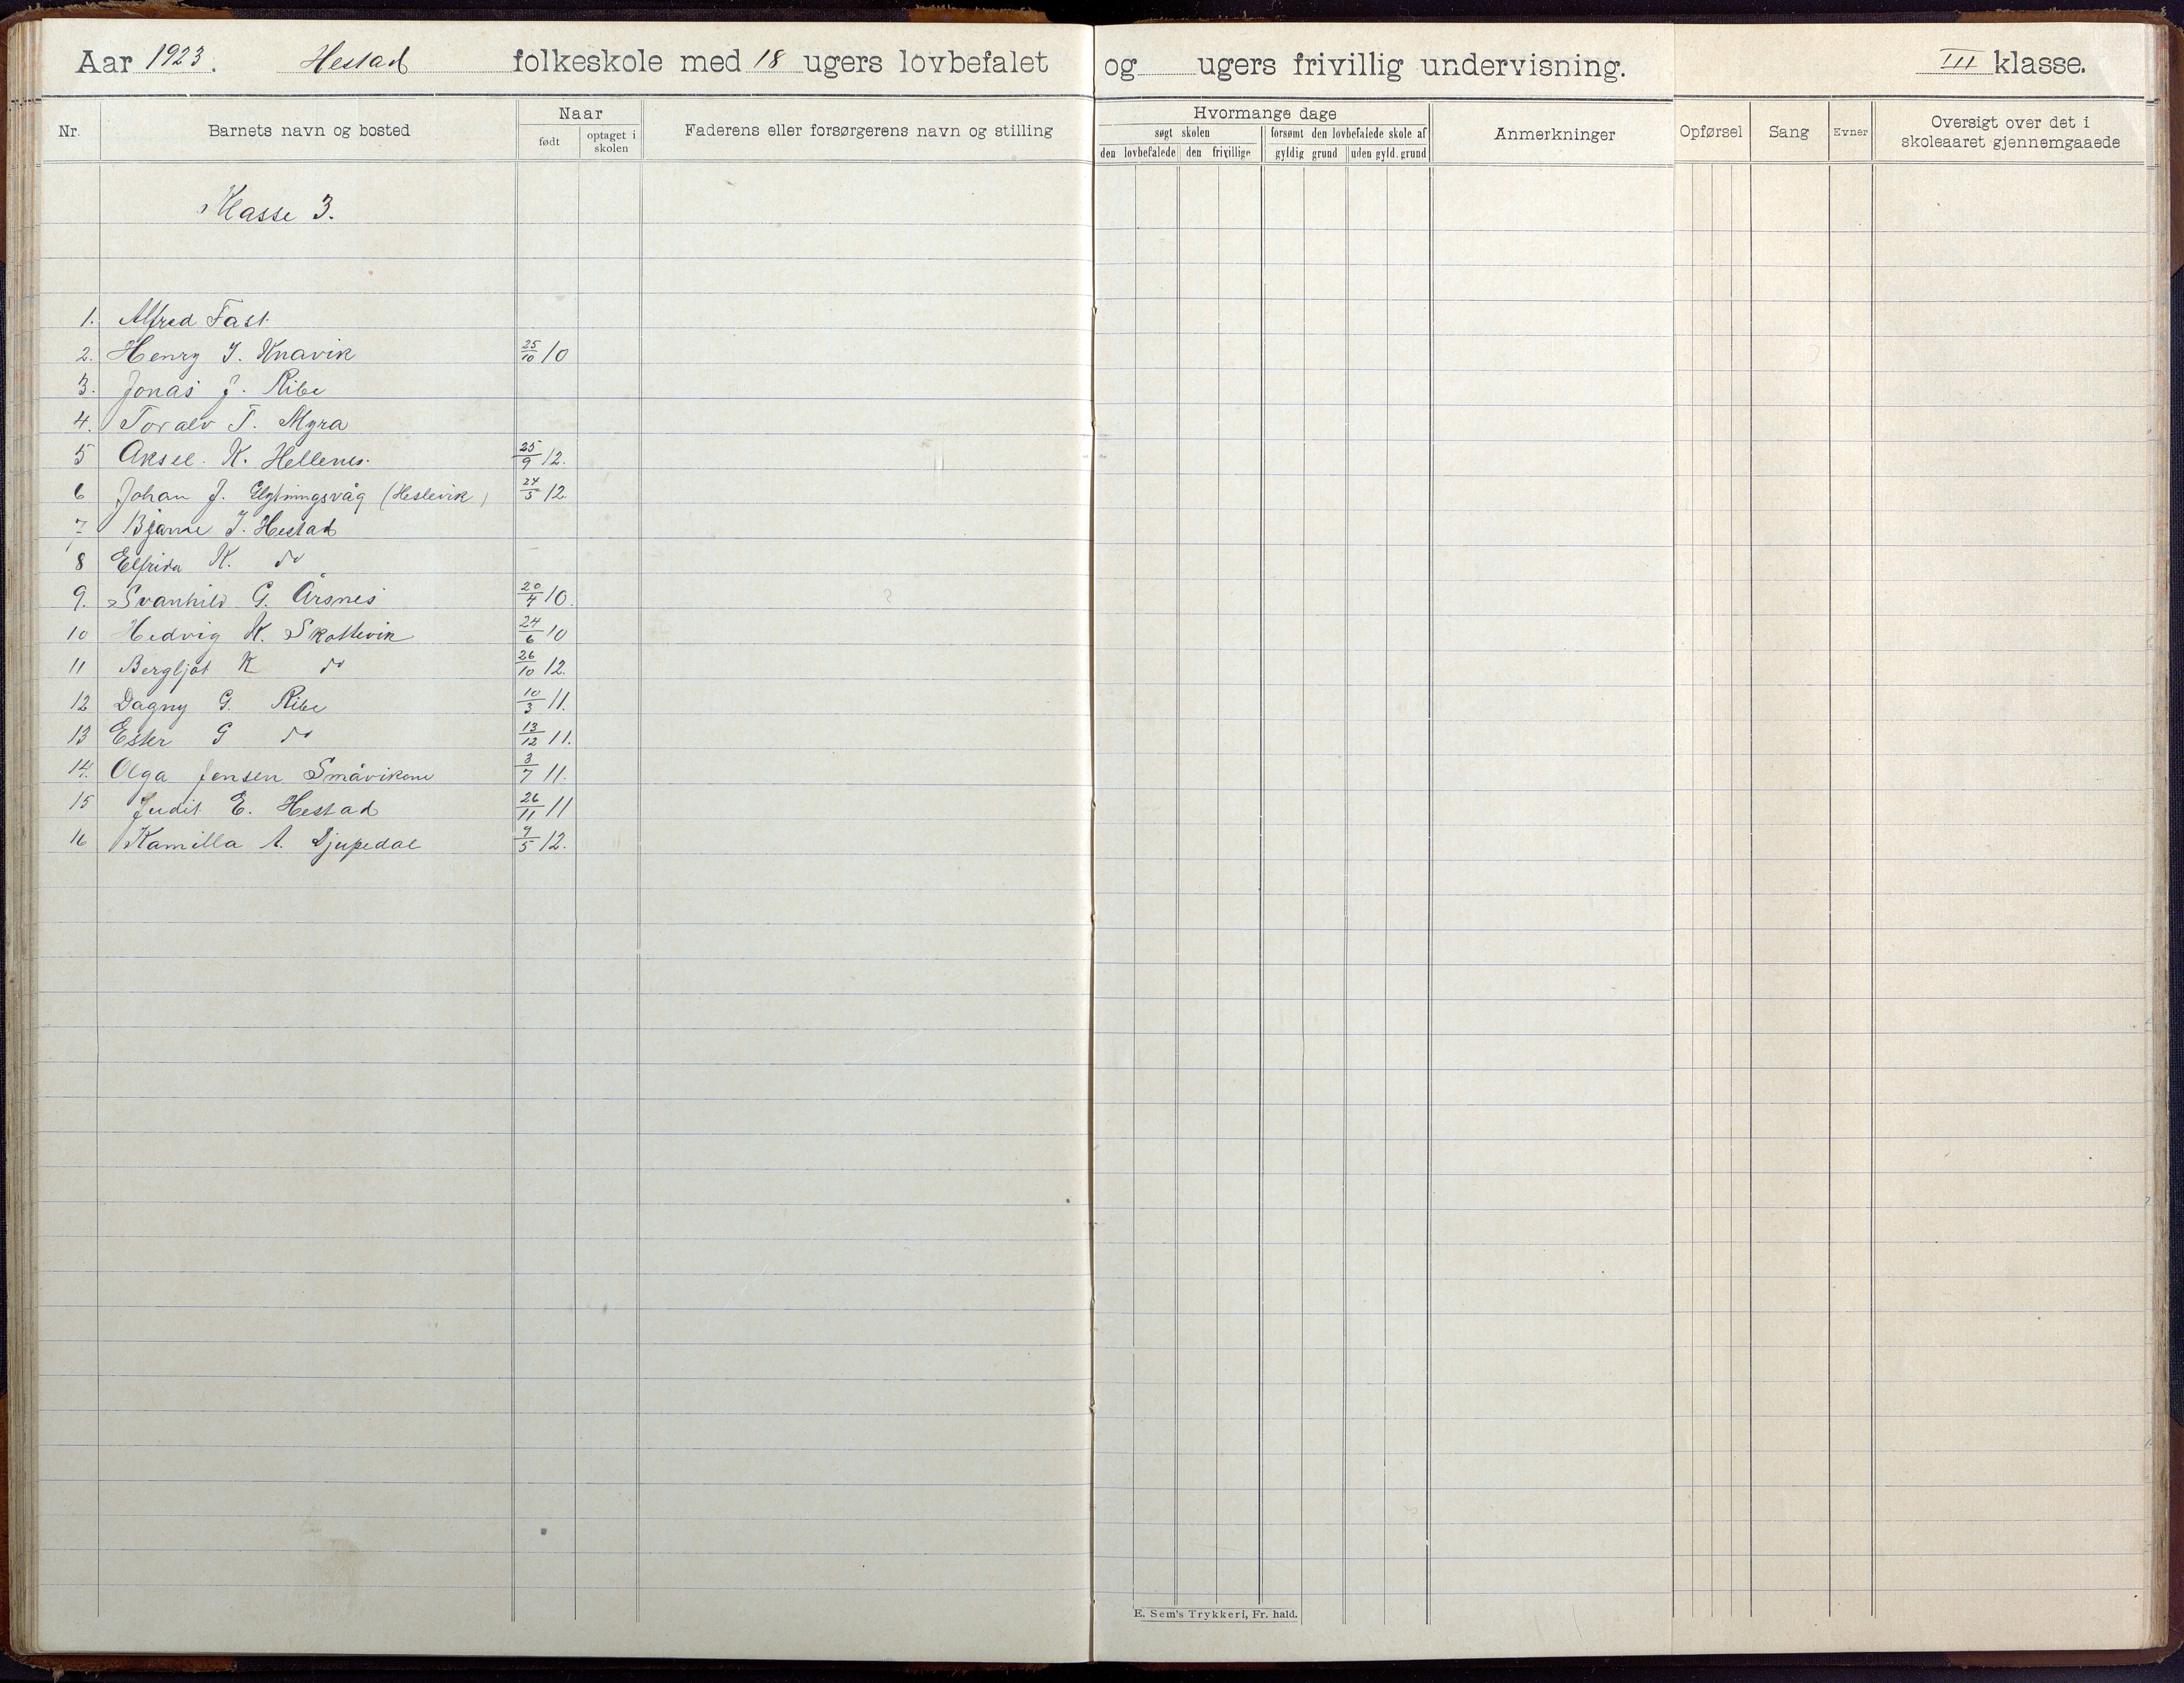 Aar 1923. Hestad folkeskole med 18 ugers lovbefalet og ugers frivillig undervisning. III klasse.
Nr. Barnets navn og bosted Naar født optaget i skolen Faderens eller forsørgerens navn og stilling Hvormange dage søgt skolen den lovbefalede den frivillige forsømt den lovbefalede skole af gyldig grund uden gyld. grund Anmerkninger Opførsel Sang Evner Oversigt over det i skoleaaret gjennemgaaede
Klasse 3.
1. Alfred Fast
2. Henry J. Knavik 25/10 10
3. Jonas J. Ribe
4. Toralv T. Myra
5 Aksel K. Hellenes. 25/9 12.
6 Johan J. Glytningsvåg (Heslevik) 24/5 12.
7 Bjarne J. Hestad
8 Elfrida K. do
9. Svanhild G. Årsnes 20/4 10.
10 Hedvig K. Skottevik 24/6 10
11 Bergljot K do 26/10 12.
12 Dagny G. Ribe 10/3 11.
13 Ester G do 13/12 11.
14. Olga Jensen Småvikene 3/7 11.
15 Judit E. Hestad 26/11 11
16 Kamilla A. Djupedal 9/5 12.
E. Sem's Trykkeri, Fr. hald.